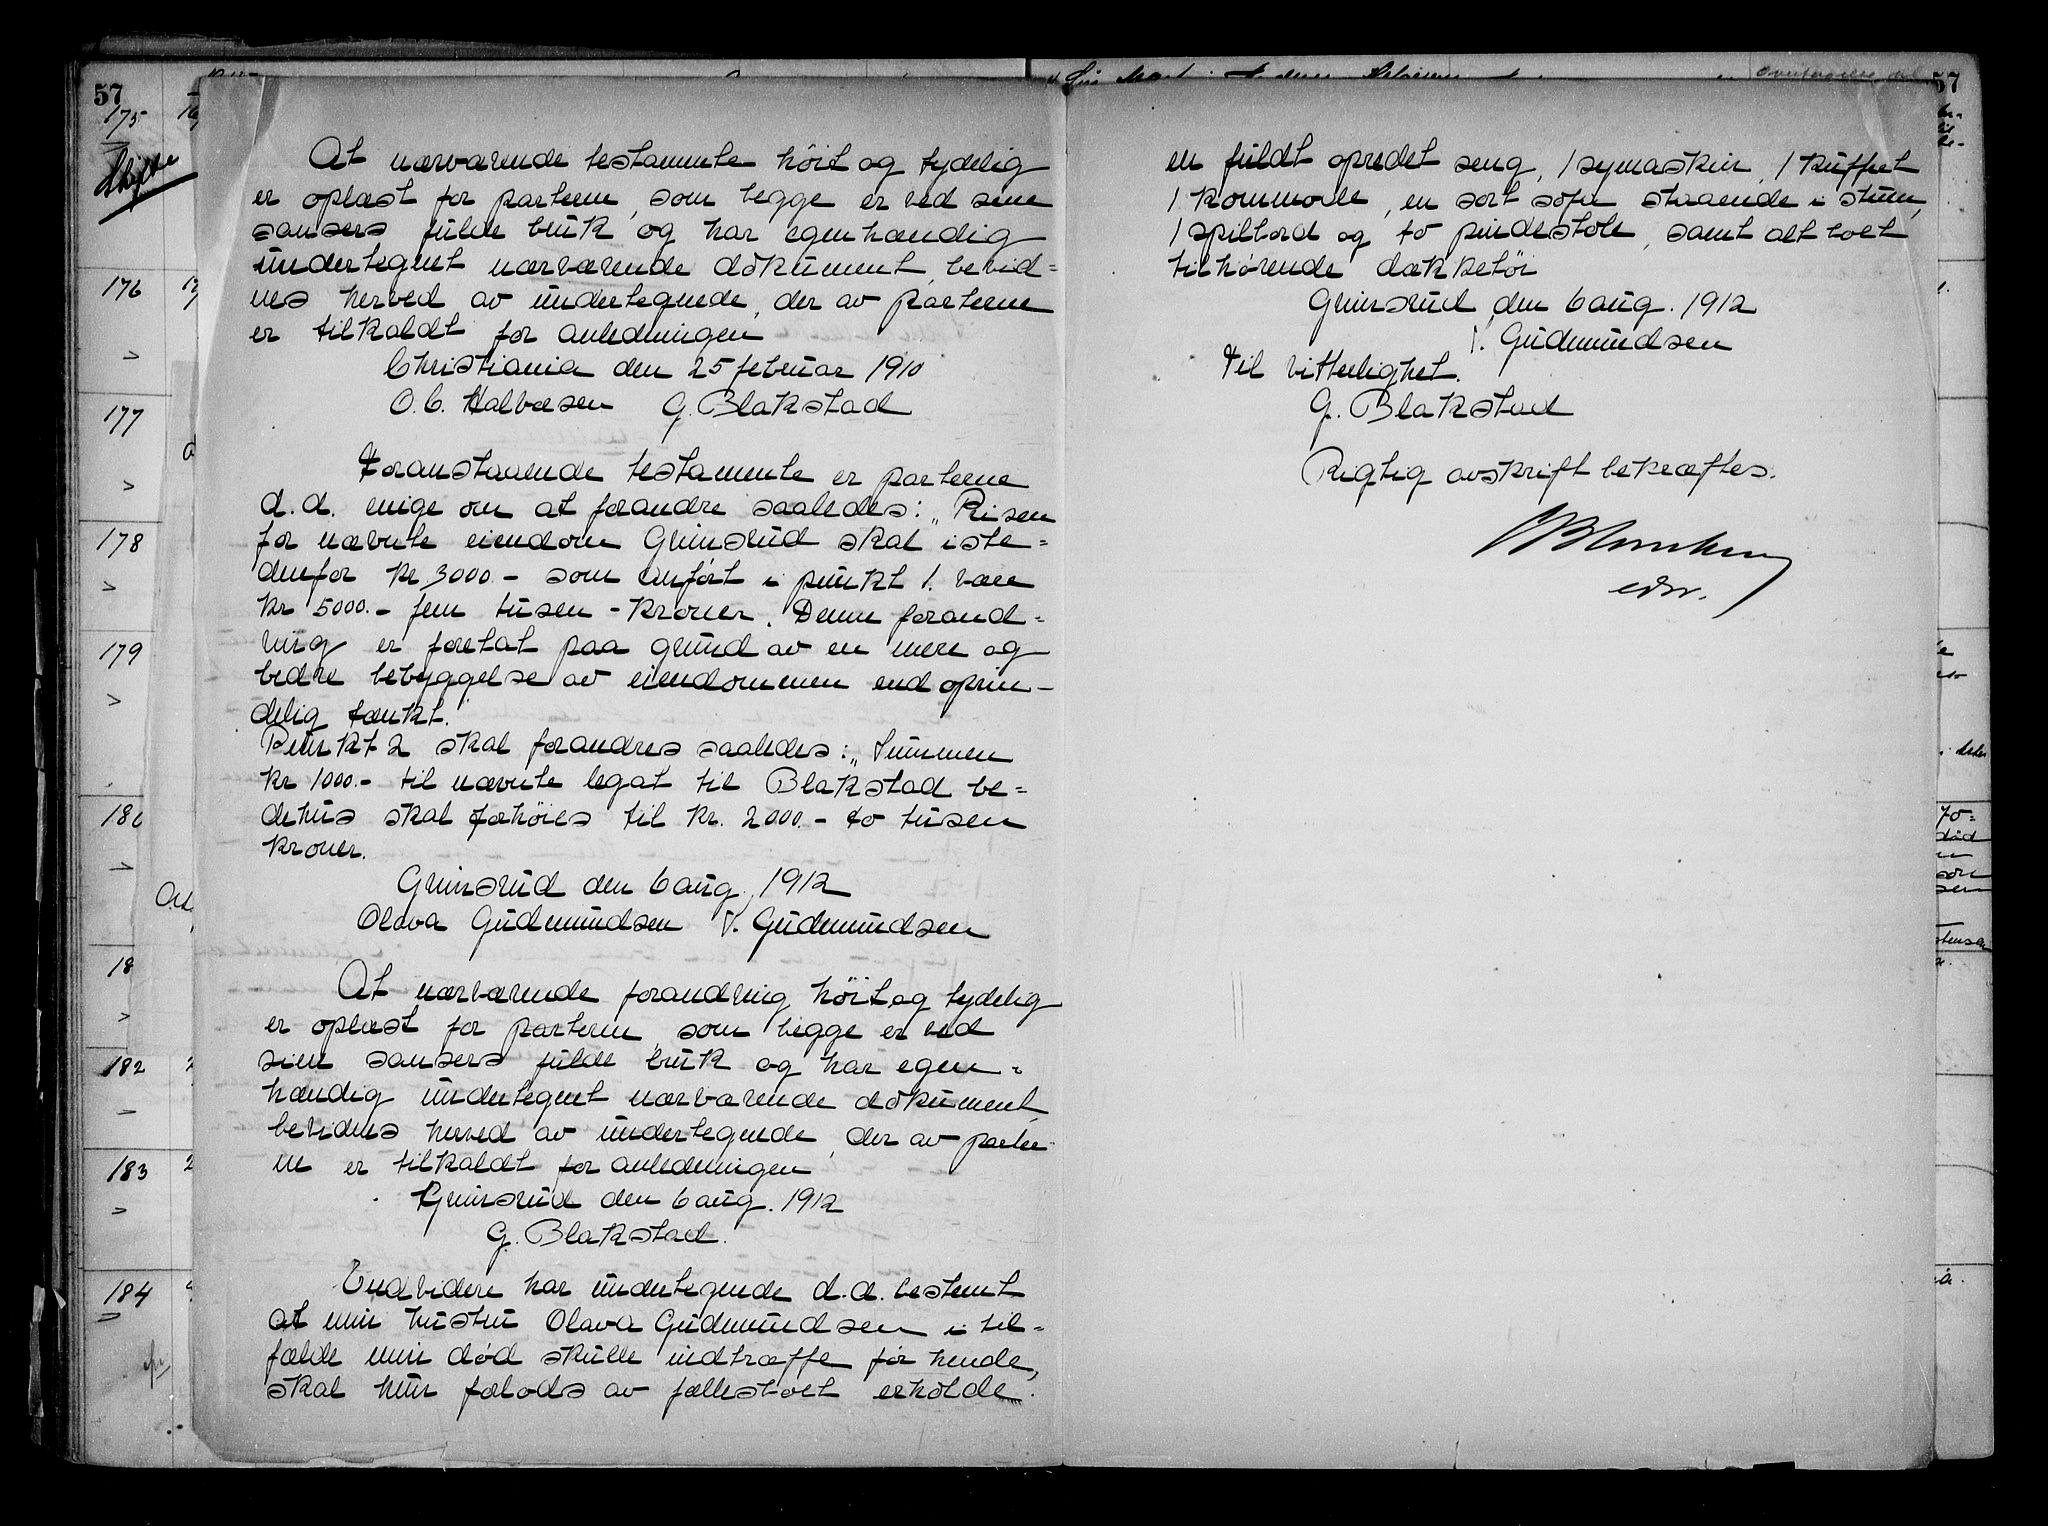 57
175
Skifte
176
177
178
179
180
18
182
183
184
At nærværende testamente høit og tydelig
er oplæst for parterne, som begge er ved sine
sansers fulde bruk og har egenhændig
undertegnet nærværende dokument, bevid=
nes herved av undertegnede, der av parterne
er tilkaldt for anledningen
Christiania den 25 februar 1910
O. C. Halvorsen G. Blakstad
Foranstaaende testamente er parterne
d.d. enige om at forandre saaledes: „Prisen
for nævnte eiendom Grinsrud skal iste=
denfor kr 3000.- som anført i punkt 1. være
kr 5000.- fem tusen - kroner. Denne forand=
ring er foretat paa grund av en mere og
bedre bebyggelse av eiendommen end oprin-
delig tænkt.
Punkt 2 skal forandres saaledes: „Summen
kr 1000.- til nævnte legat til Blakstad be=
dehus skal forhøies til kr. 2000.- to tusen
kroner.
Grinsrud den 6 aug. 1912
Olava Gudmundsen V. Gudmundsen
At nærværende forandring høit og tydelig
er oplæst for parterne, som begge er ved
sine sansers fulde bruk og har egen=
hændig undertegnet nærværende dokument,
bevidnes herved av undertegnede, der av parter-
ne er tilkaldt for anledningen
Grinsrud den 6 aug. 1912
G. Blakstad.
Endvidere har undertegnede d.d. bestemt
at min hustru Olava Gudmundsen i til=
fælde min død skulde indtræffe før hende,
skal hun forlods av fællesboet erholde
57
en fuldt opredet seng, 1 symaskin, 1 kuffert
1 kommode, en sort sofa staaende i stuen,
1 spilbord og to pindestole, samt alt boet
tilhørende dækketøi
Grinsrud den 6 aug. 1912
V. Gudmundsen
Til vitterlighet.
G. Blakstad
Rigtig avskrift bekræftes.